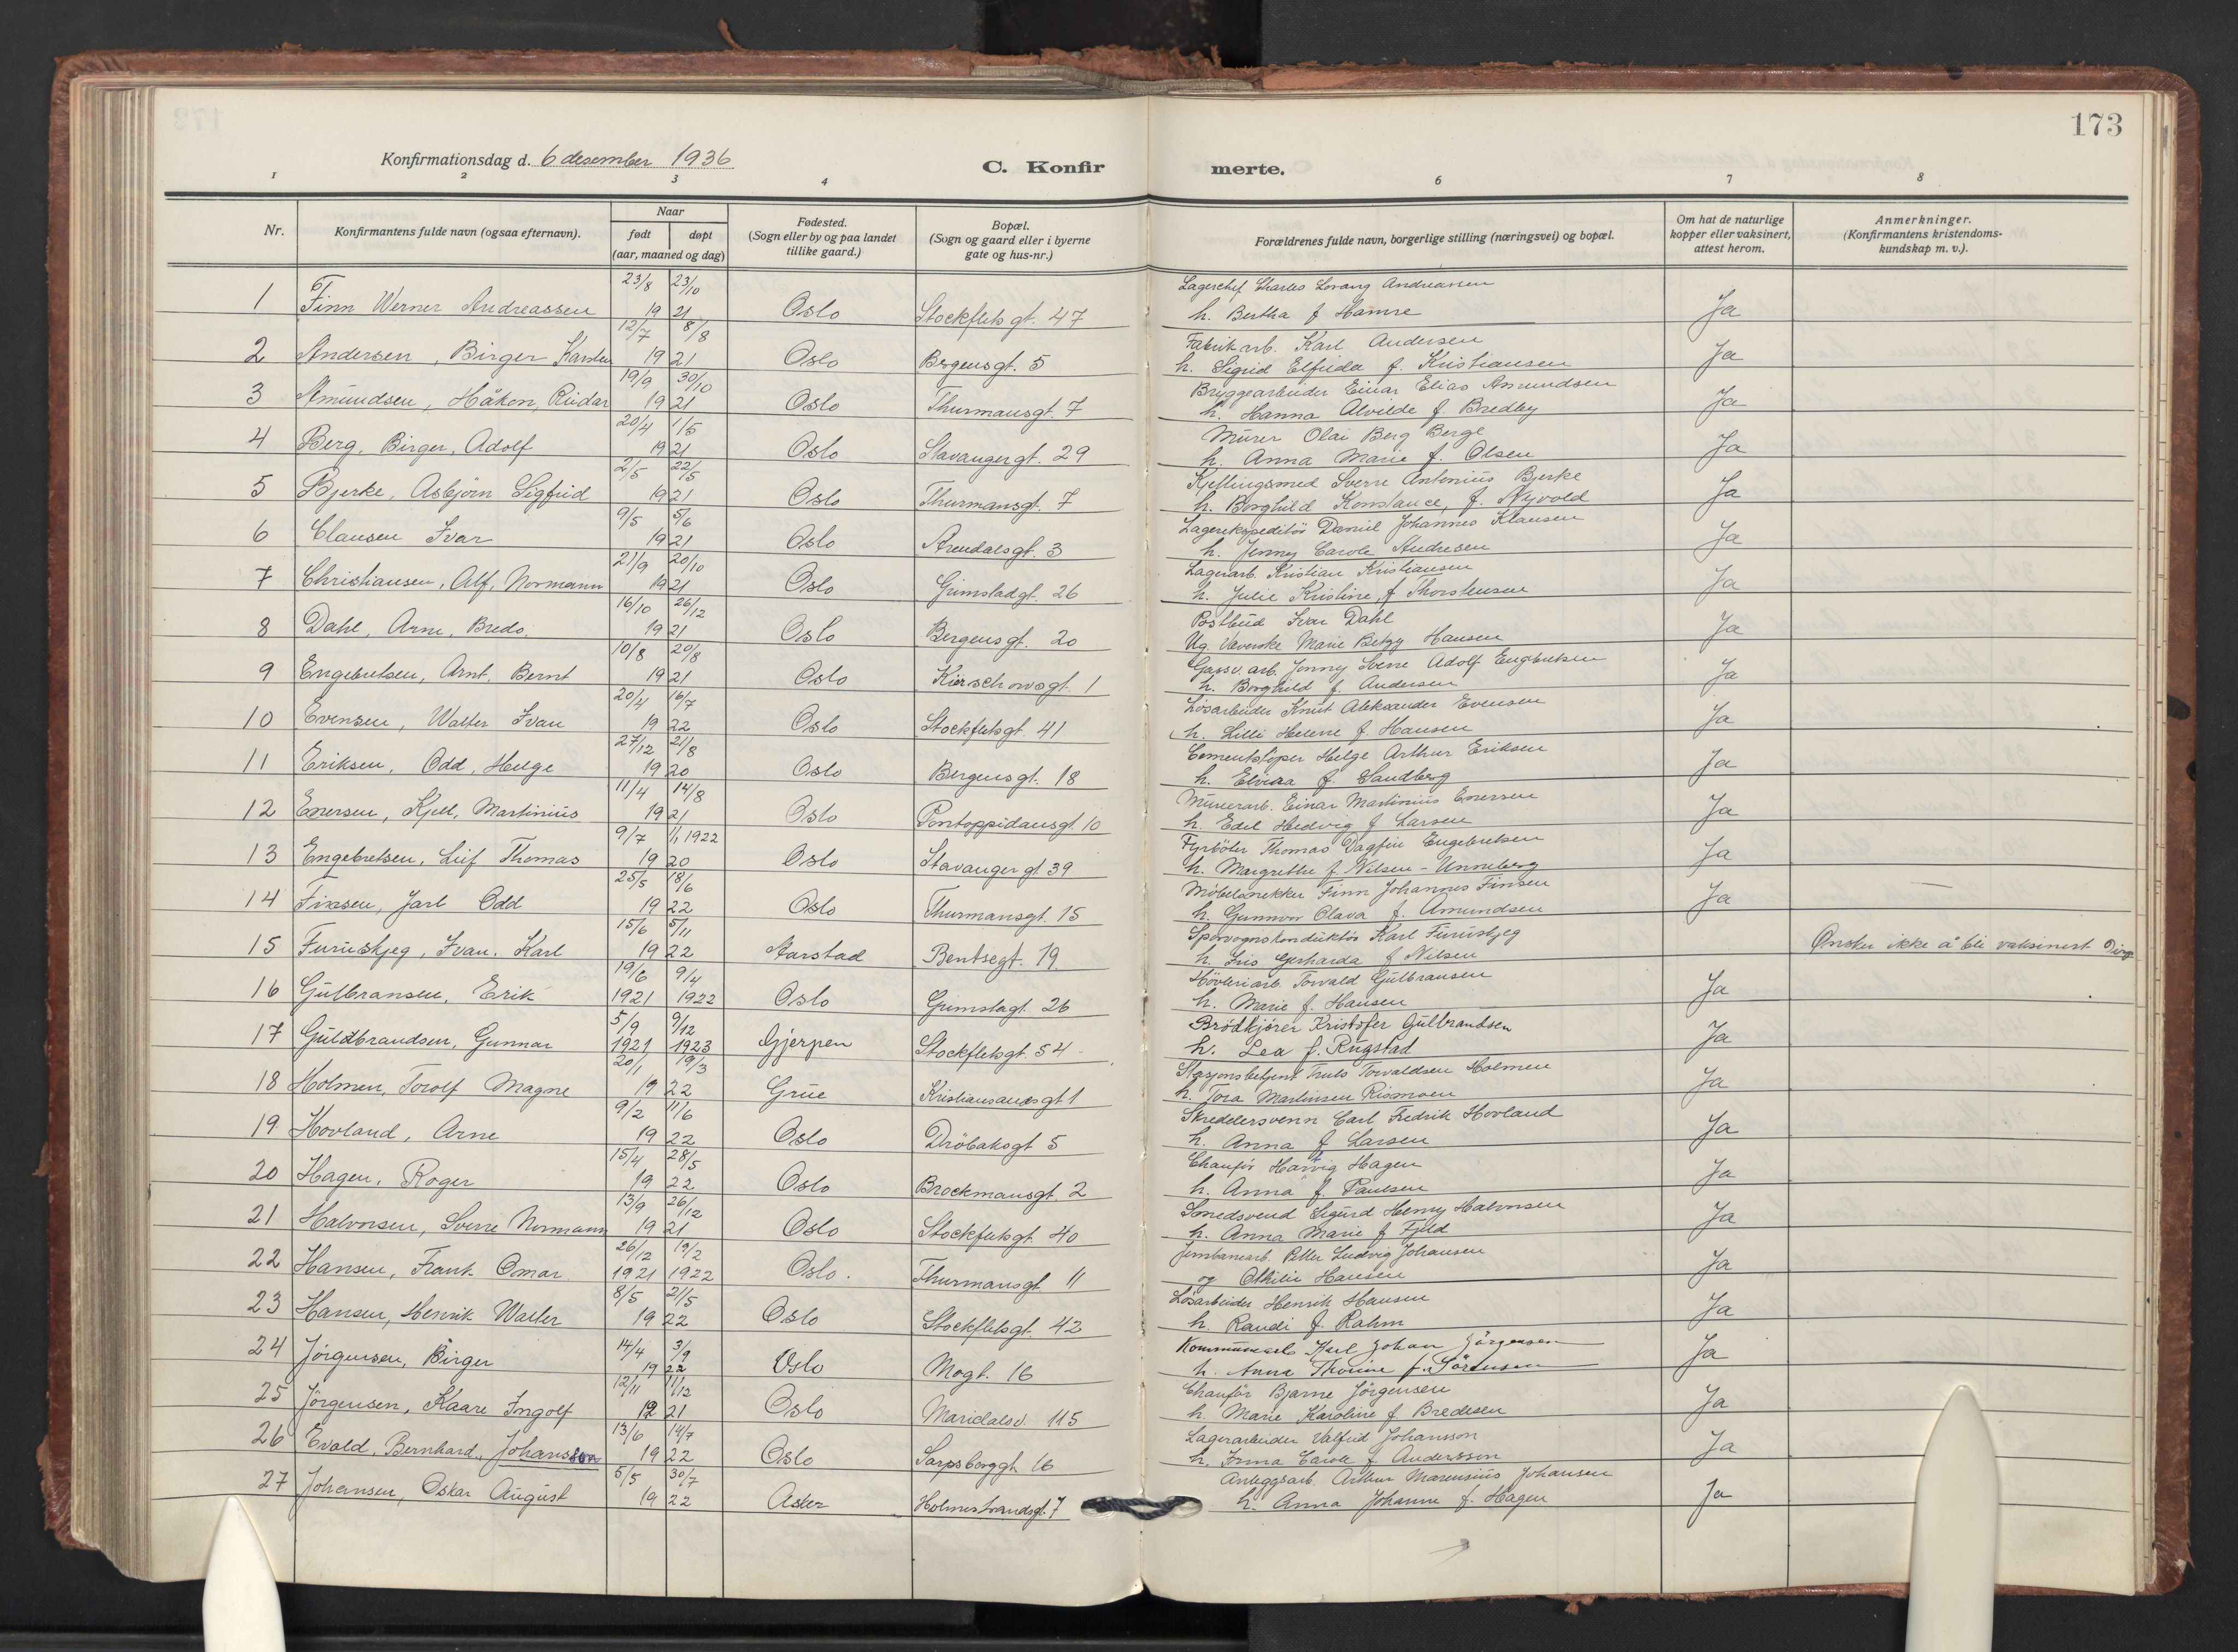 173
Konfirmationsdag d. 6 desember 1936
C. Konfirmerte.
1 2 3 4 6 7 8
Nr.
Konfirmantens fulde navn (ogsaa efternavn).
Naar
født døpt
(aar, maaned og dag)
Fødested.
(Sogn eller by og paa landet
tillike gaard.)
Bopæl.
(Sogn og gaard eller i byerne
gate og hus-nr.)
Forældrenes fulde navn, borgerlige stilling (næringsvei) og bopæl.
Om hat de naturlige
kopper eller vaksinert,
attest herom.
Anmerkninger.
(Konfirmantens kristendoms-
kundskap m. v.).
1 Finn Werner Andreassen 23/8 23/10 1921 Oslo Stockfletsgt. 47 Lagerchef Charles Lorang Andreassen
h. Bertha f Hamre Ja
2 Andersen, Birger Karsten 12/7 8/8 1921 Oslo Bergensgt. 5 Fabrikarb. Karl Andersen
h. Sigrid Elfrida f. Kristiansen Ja
3 Amundsen, Håkon, Reidar 19/9 30/10 1921 Oslo Thurmansgt. 7 Bryggearbeider Einar Elias Amundsen
h. Hanna Alvilde f. Bredby Ja
4 Berg, Birger, Adolf 20/4 1/5 1921 Oslo Stavangergt. 29 Murer Olai Berg Berge
h. Anna Marie f. Olsen Ja
5 Bjerke, Asbjörn Sigfrid 2/5 22/5 1921 Oslo Thurmansgt. 7 Kjetlingsmed Sverre Antonius Bjerke
h. Borghild Konstance, f. Nyvold Ja
6 Clausen Ivar 9/5 5/6 1921 Oslo Arendalsgt. 3 Lagerekspeditör Daniel Johannes Klausen
h. Jenny Carole Andresen Ja
7 Christiansen, Alf, Normann 21/9 20/10 1921 Oslo Grimstadgt. 26 Lagerarb. Kristian Kristiansen
h. Julie Kristine f Thorstensen Ja
8 Dahl, Arne, Bredo. 16/10 26/12 1921 Oslo Bergensgt. 20 Postbud Ivar Dahl
Ug. Væverske Marie Betzy Hansen Ja
9 Engebretsen, Arnt, Bernt 10/8 20/8 1921 Oslo Kierschowsgt. 1 Gassv. arb. Jonny Sverre Adolf Engebretsen
h. Borghild f. Andersen Ja
10 Evensen, Walter Ivan 20/4 16/7 1922 Oslo Stockfletsgt. 41 Lösarbeider Knut Aleksander Evensen
h. Lilli Helene f. Hansen Ja
11 Eriksen, Odd, Helge 27/12 21/8 1920 Oslo Bergensgt. 18 Cementstöper Helge Arthur Eriksen
h. Elvina f. Sandberg Ja
12 Enersen, Kjell, Martinius 11/4 14/8 1921 Oslo Pontoppidansgt. 10 Murerarb. Einar Martinius Enersen
h. Edel Hedvig f Larsen Ja
13 Engebretsen, Leif Thomas 9/7 1/1 1922 1920 Oslo Stavangergt 39 Fyrböter Thomas Dagfin Engebretsen
h. Margrethe f. Nilsen - Unneberg Ja
14 Finsen, Jarl Odd 25/5 18/6 1922 Oslo Thurmansgt. 15 Möbelsnekker Finn Johannes Finsen
h. Gunnvor Olava f. Amundsen Ja
15 Furuskjeg, Ivan. Karl 15/6 5/11 1922 Aarstad Bentsegt. 19. Sporvognskonduktör Karl Furuskjeg
h. Iris Gerharda f Nilsen Ønsker ikke å bli vaksinert
16 Gulbransen, Erik 19/6 1921 9/4 1922 Oslo Grimstagt. 26 Hövleriarb. Torvald Gulbransen
h. Marie f. Hansen Ja
17 Guldbrandsen, Gunnar 5/9 1921 9/12 1923 Gjerpen Stockfletsgt. 54 Brödkjörer Kristofer Gulbrandsen
h. Lea f. Rugstad Ja
18 Holmen, Torolf Magne 20/1 19/3 1922 Grue Kristiansandsgt 1 Stasjonsbetjent Truls Torvaldsen Holmen
h. Tora Martinsen Rismoen Ja
19 Hovland, Arne 9/2 11/6 1922 Oslo Dröbaksgt 5 Skreddersvenn Carl Fredrik Hovland
h. Anna f Larsen Ja
20 Hagen, Roger 15/4 28/5 1922 Oslo Brockmansgt. 2 Chauför Hartvig Hagen
h. Anna f. Paulsen Ja
21 Halvorsen, Sverre Normann 13/9 26/12 1921 Oslo Stockfletsgt. 40 Smedsvend Sigurd Henry Halvorsen
h. Anna Marie f Fjeld Ja
22 Hansen, Frank Omar 26/12 1921 19/2 1922 Oslo. Thurmansgt 11 Jernbanearb. Petter Ludvig Johansen
og Othilie Hansen Ja
23 Hansen, Henrik Walter 8/5 21/5 1922 Oslo Stockfletsgt. 42 Lösarbeider Henrik Hansen
h. Randi f. Rahm Ja
24 Jörgensen, Birger 14/4 3/9 1922 Oslo Mogt. 16 Kommunearb. Karl Johan Jörgensen
h. Anna Thorine f. Sörensen Ja
25 Jörgensen, Kaare Ingolf 12/11 11/12 1921 Oslo Maridalsv. 115 Chauför Bjarne Jörgensen
h. Marie Karoline f Bredesen Ja
26 Evald, Bernhard, Johansson 13/6 14/7 1922 Oslo Sarpsborggt. 16 Lagerarbeider Valfrid Johansson
h. Irma Carole f Andersson Ja
27 Johansen, Oskar August 5/5 30/7 1922 Asker Holmestrandsgt. 7 Anleggsarb. Arthur Marensius Johansen
h. Anna Johanne f. Hagen Ja